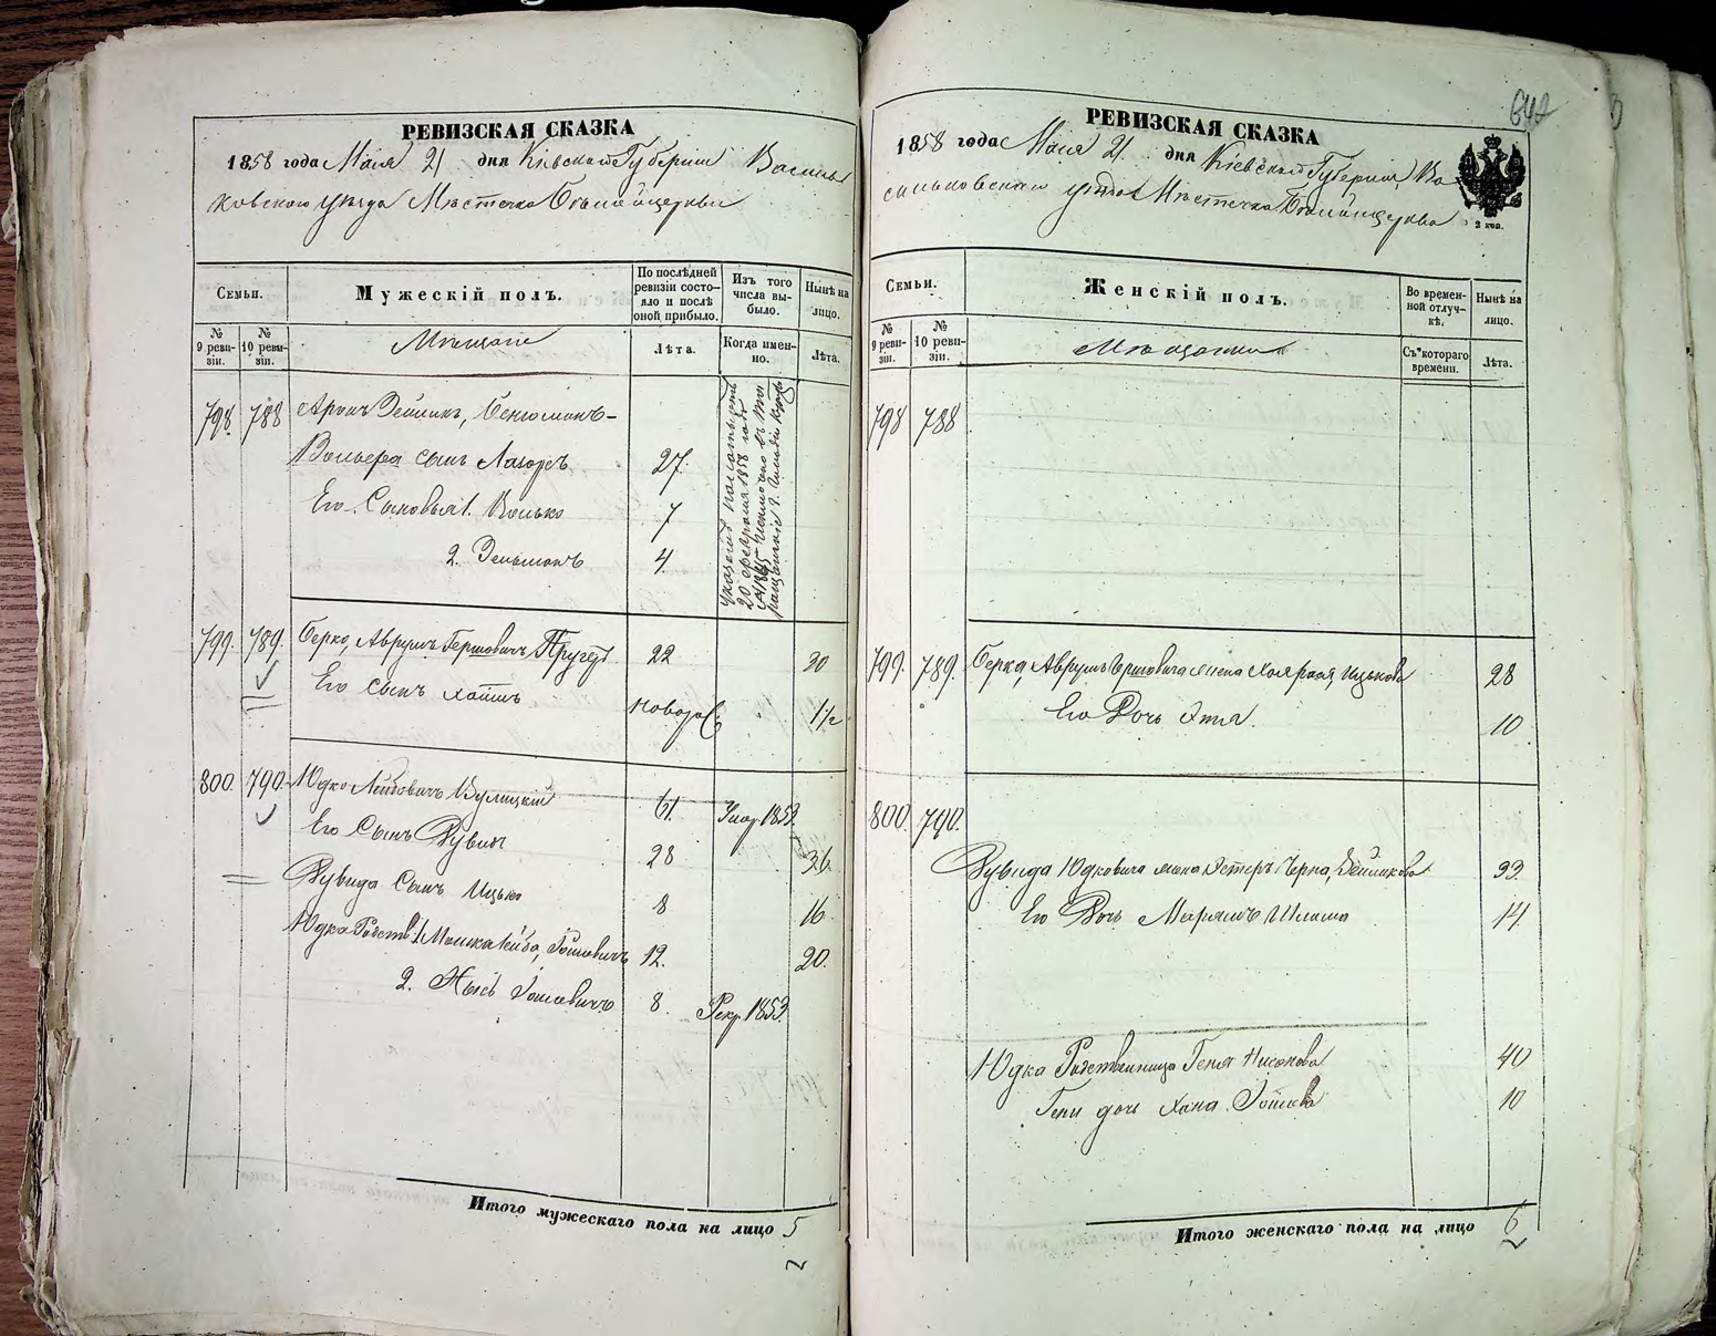 РЕВИЗСКАЯ СКАЗКА
1858 года Маія 21 дня Кіевской Губерніи Василь
ковскаго уѣзда Мѣстечка Бѣлойцеркви
Семьи.
№ 9 ревизіи.
№ 10 ревизіи.
Мужескій полъ.
Мѣщане
По послѣдней ревизіи состояло и послѣ оной прибыло.
Лѣта.
Изъ того числа выбыло.
Когда именно.
Нынѣ на лицо.
Лѣта.
798 788 Аронъ Зейликъ, Беніоминъ-
Вольфа сынъ Лазаръ 27.
Его Сыновья 1. Волько 7
2. Зельманъ 4.
20 февраля 1858 года
799. 789. Берко, Аврумъ Гершовичъ Пругеръ 22 30
Его сынъ Хаимъ новорож 1½
800. 790. Юдко Лейбовичъ Вулицкій 61. Умер 1853.
Его Сынъ Дувид 28 36.
Дувида Сынъ Ицько 8 16
Юдка Родств. 1. Мошка Лейба, Іоинович 12. 20.
2. Нысь Іоиновичъ 8. Рекр. 1853.
Итого мужескаго пола на лицо 5
642
РЕВИЗСКАЯ СКАЗКА
1858 года Маія 21 дня Кіевской Губерніи, Ва
сильковскаго уѣзда Мѣстечка Бѣлойцеркви
2 коп.
Семьи.
№ 9 ревизіи.
№ 10 ревизіи.
Женскій полъ.
Мѣщанки
Во временной отлучкѣ.
Съ котораго времени.
Нынѣ на лицо.
Лѣта.
798 788
799. 789. Берка, Аврумъ Гершовича жена Ицькова 28
Его Дочь Этля 10
800. 790.
Дувида Юдковича жена Эстеръ Черна, Зейликова 33.
Его Дочь Маріямъ Шлима 14.
Юдка Родственница Геня Нисонова 40
Гени дочь Хана 10
Итого женскаго пола на лицо 6